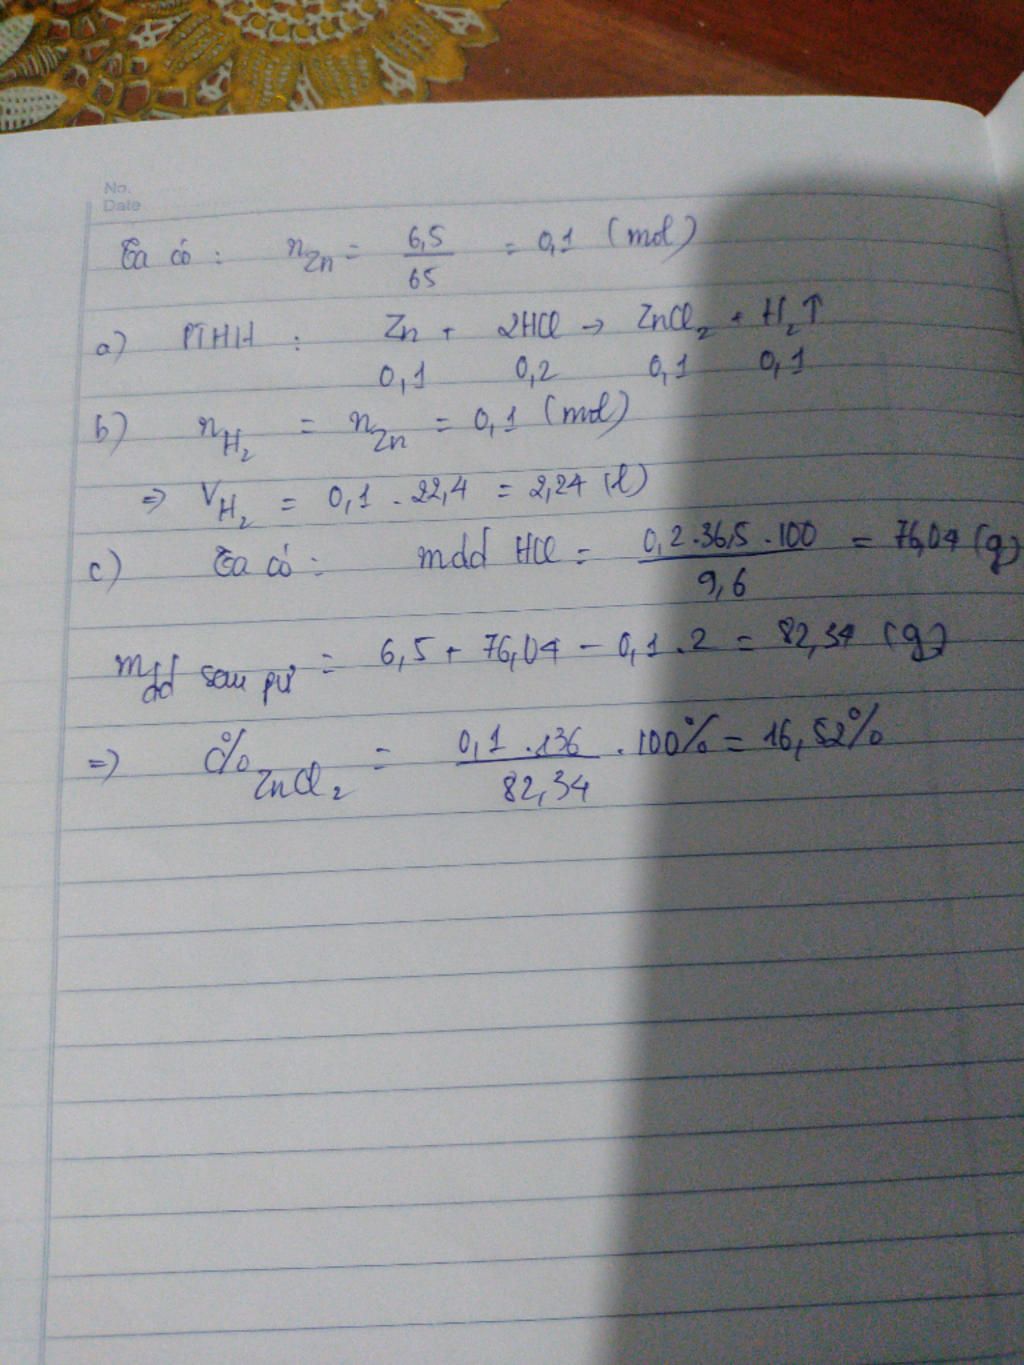 No.
Date
Ta có : nZn = 6,5/65 = 0,1 (mol)
a) PTHH : Zn + 2HCl → ZnCl₂ + H₂↑
0,1 0,2 0,1 0,1
b) nH₂ = nZn = 0,1 (mol)
=> VH₂ = 0,1 . 22,4 = 2,24 (l)
c) Ta có : mdd HCl = 0,2.36,5.100/9,6 = 76,04 (g)
mdd sau pư = 6,5 + 76,04 - 0,1.2 = 82,34 (g)
=> C%ZnCl₂ = 0,1.136/82,34 . 100% = 16,52%